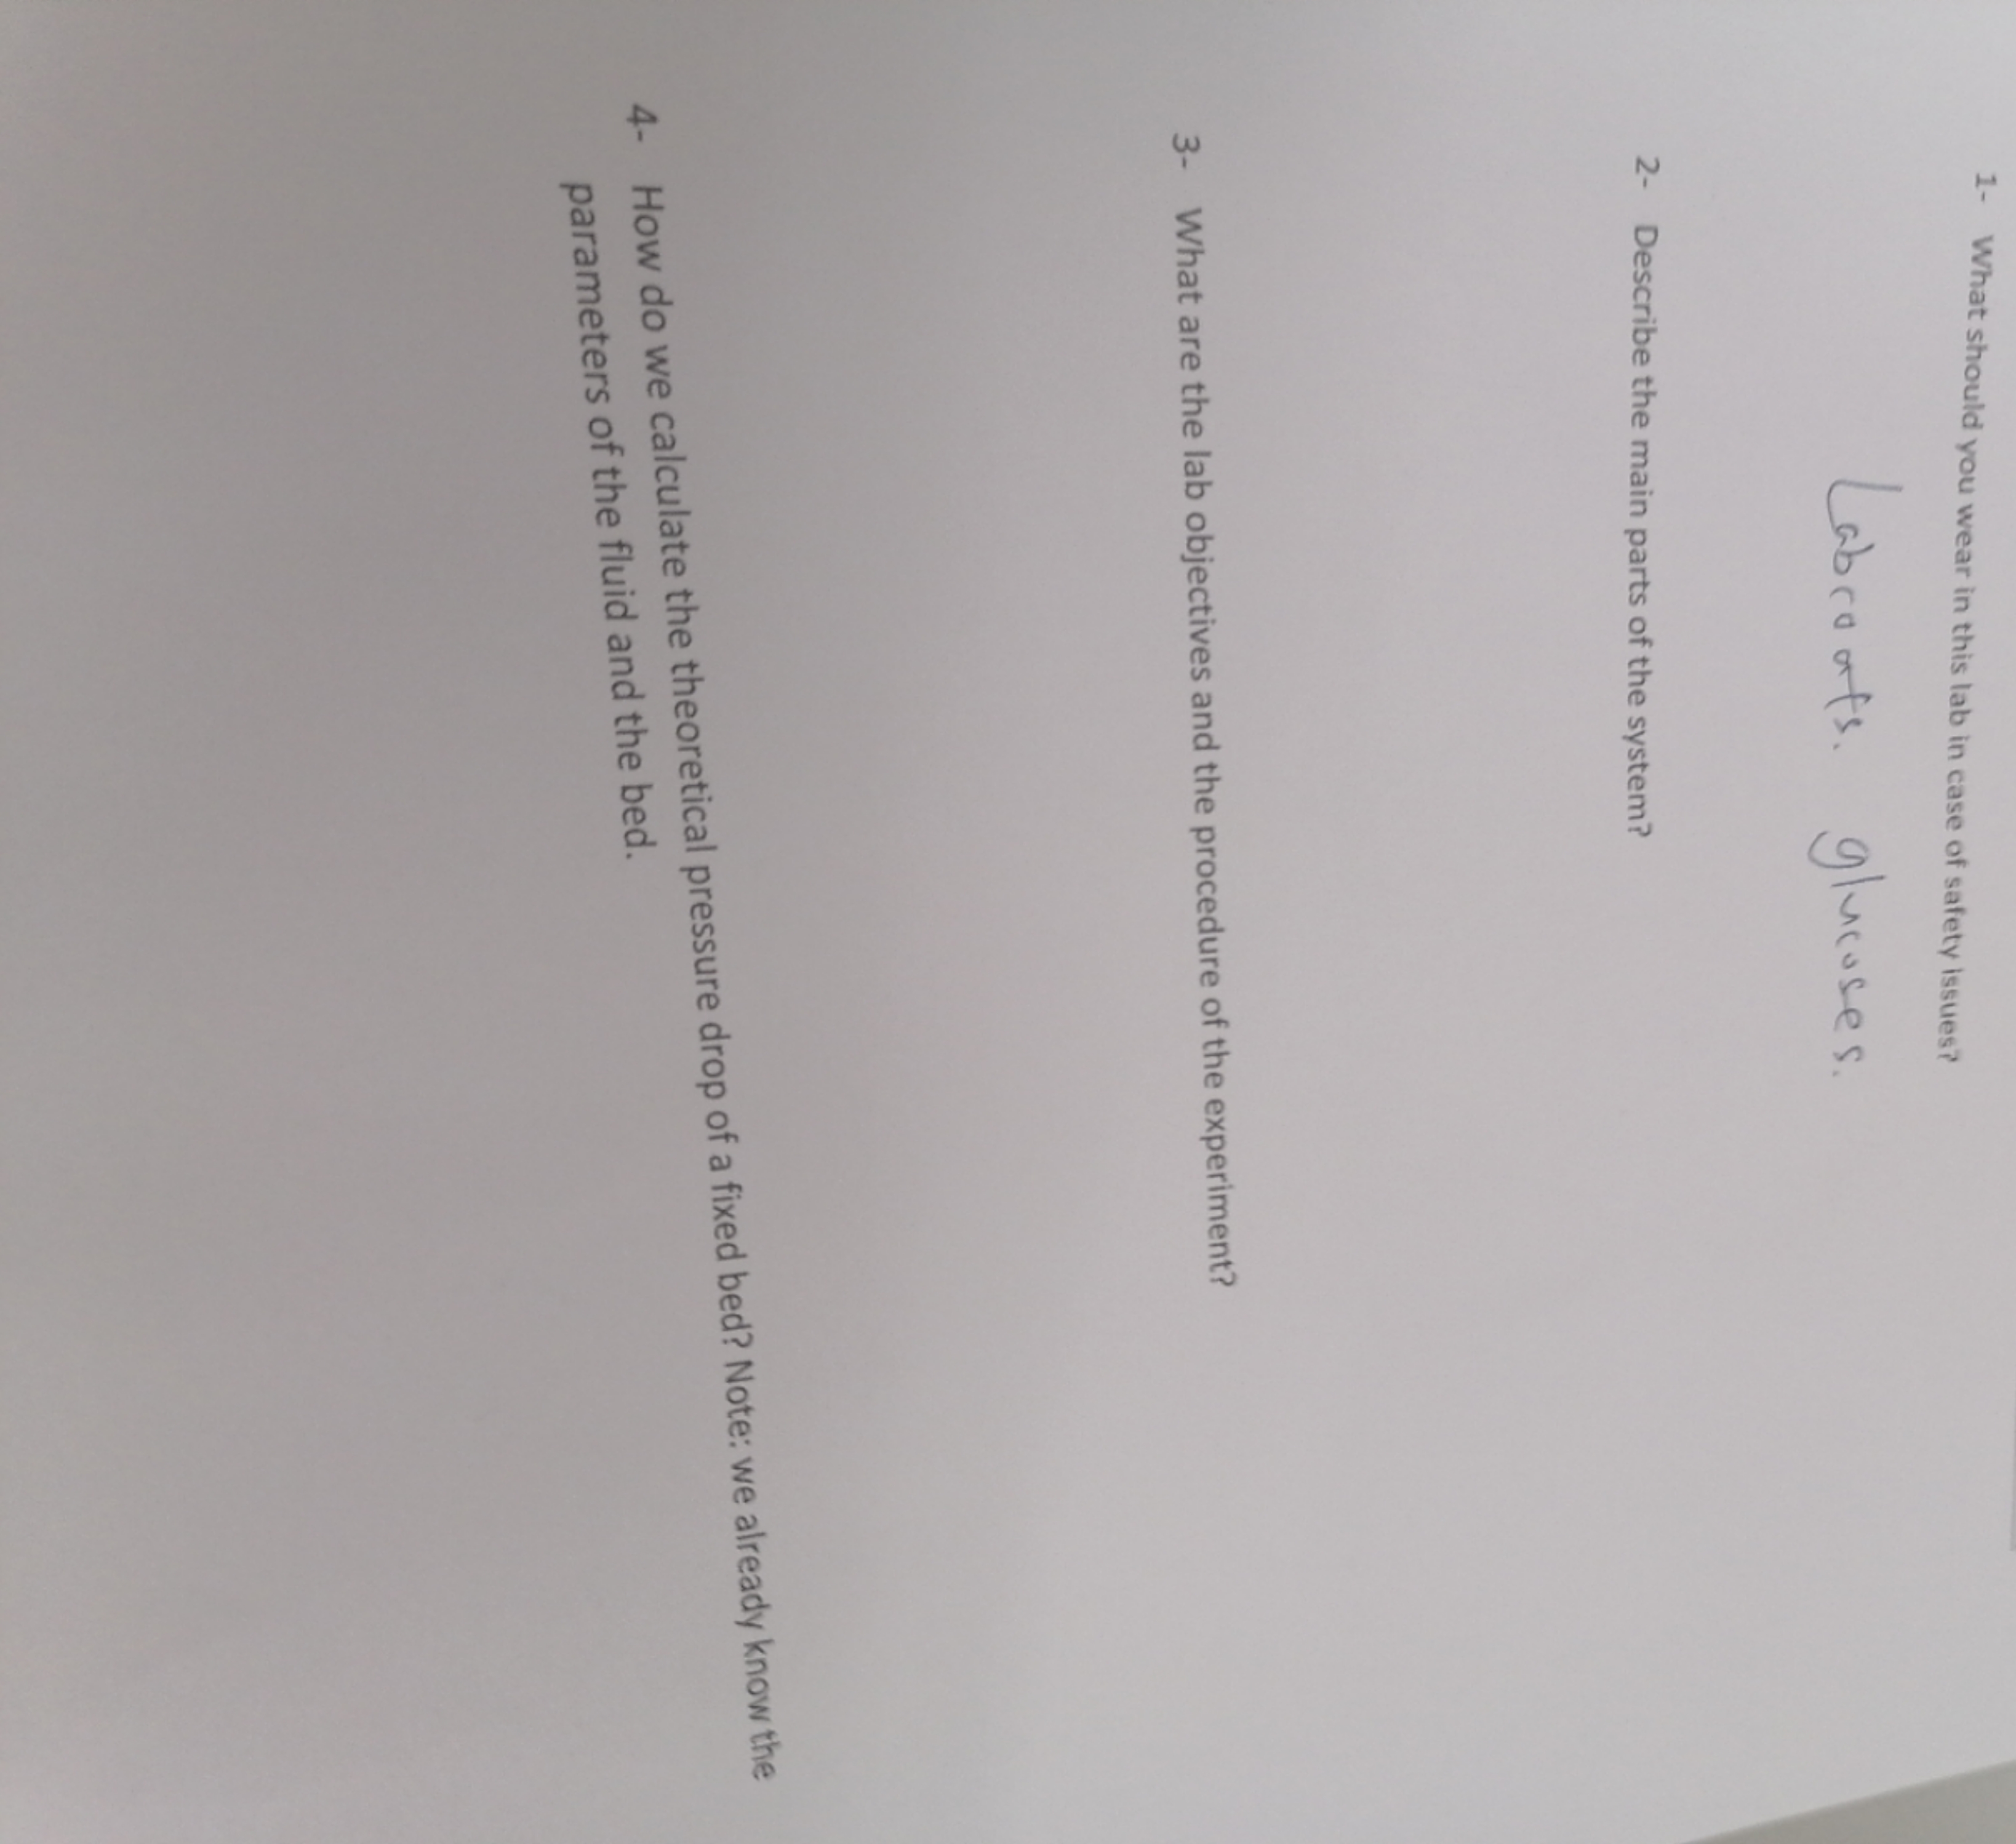 1- What should you wear in this lab in case of safety issues?
Labcoats. glucoses.
2- Describe the main parts of the system?
3- What are the lab objectives and the procedure of the experiment?
4- How do we calculate the theoretical pressure drop of a fixed bed? Note: we already know the
parameters of the fluid and the bed.